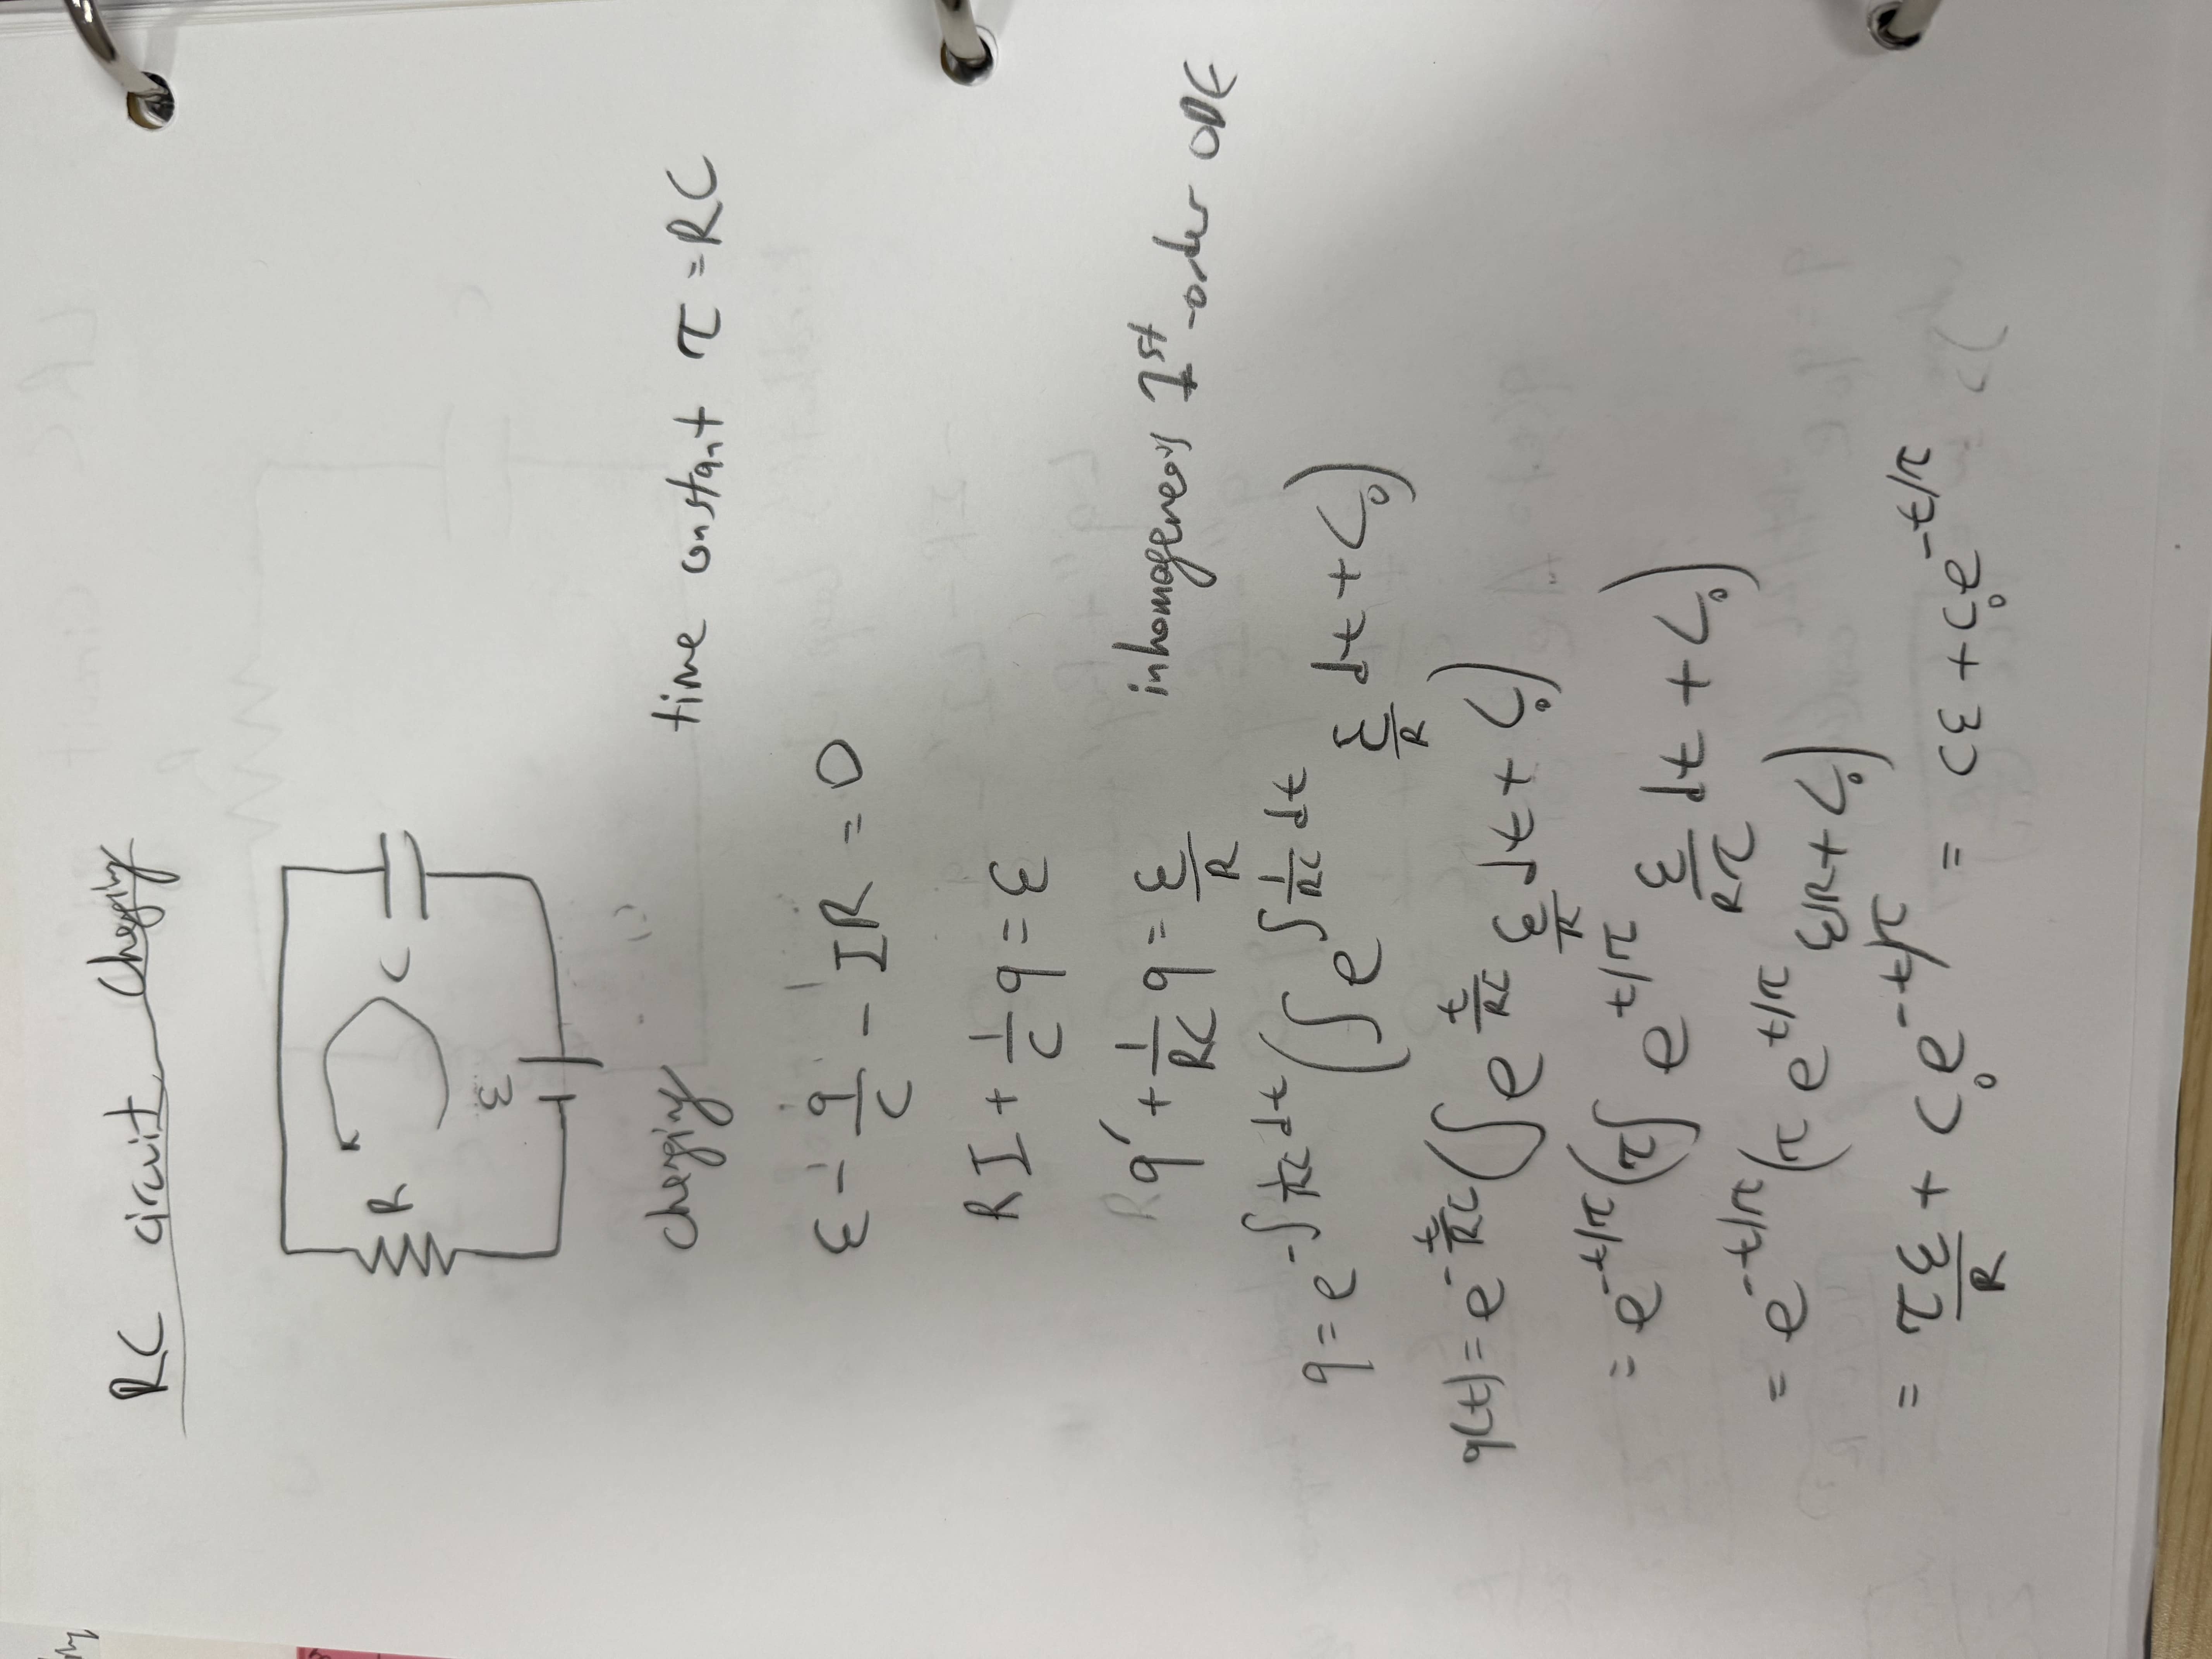 RC circuit Charging
R
C
ε
Charging
time constant τ = RC
ε - q/C - IR = 0
RI + 1/C q = ε
q' + 1/RC q = ε/R
inhomogeneous 1st-order ODE
q = e^{-∫ 1/RC dt} (∫ e^{∫ 1/RC dt} ε/R dt + C₀)
q(t) = e^{-t/RC} (∫ e^{t/RC} ε/R dt + C₀)
= e^{-t/τ} (τ∫ e^{t/τ} ε/Rτ dt + C₀)
= e^{-t/τ} (τ e^{t/τ} ε/R + C₀)
= τ ε/R + C₀e^{-t/τ} = Cε + C₀e^{-t/τ}